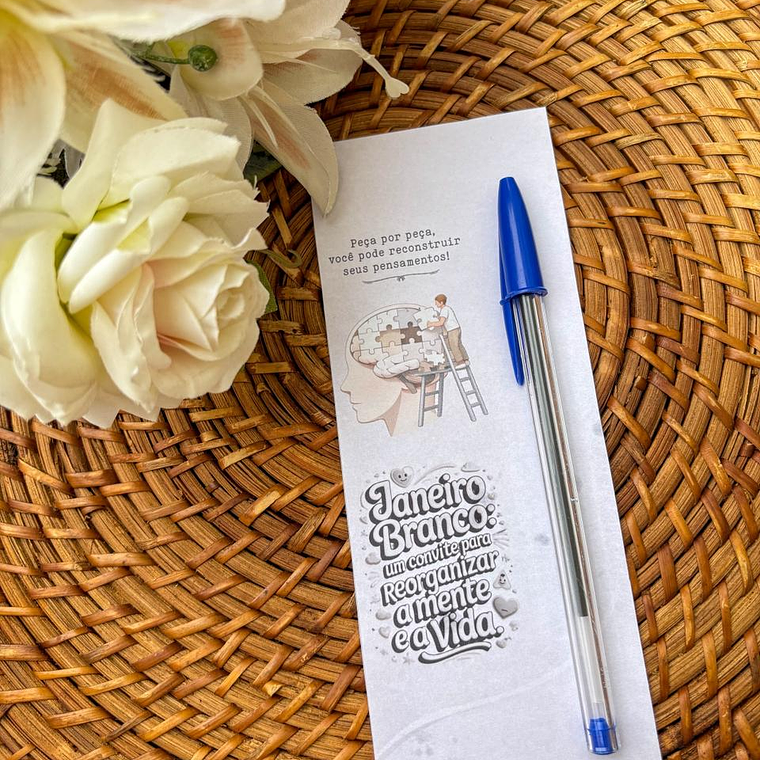 Peça por peça,
você pode reconstruir
seus pensamentos!
Janeiro
Branco:
um convite para
Reorganizar
a mente
e a Vida.